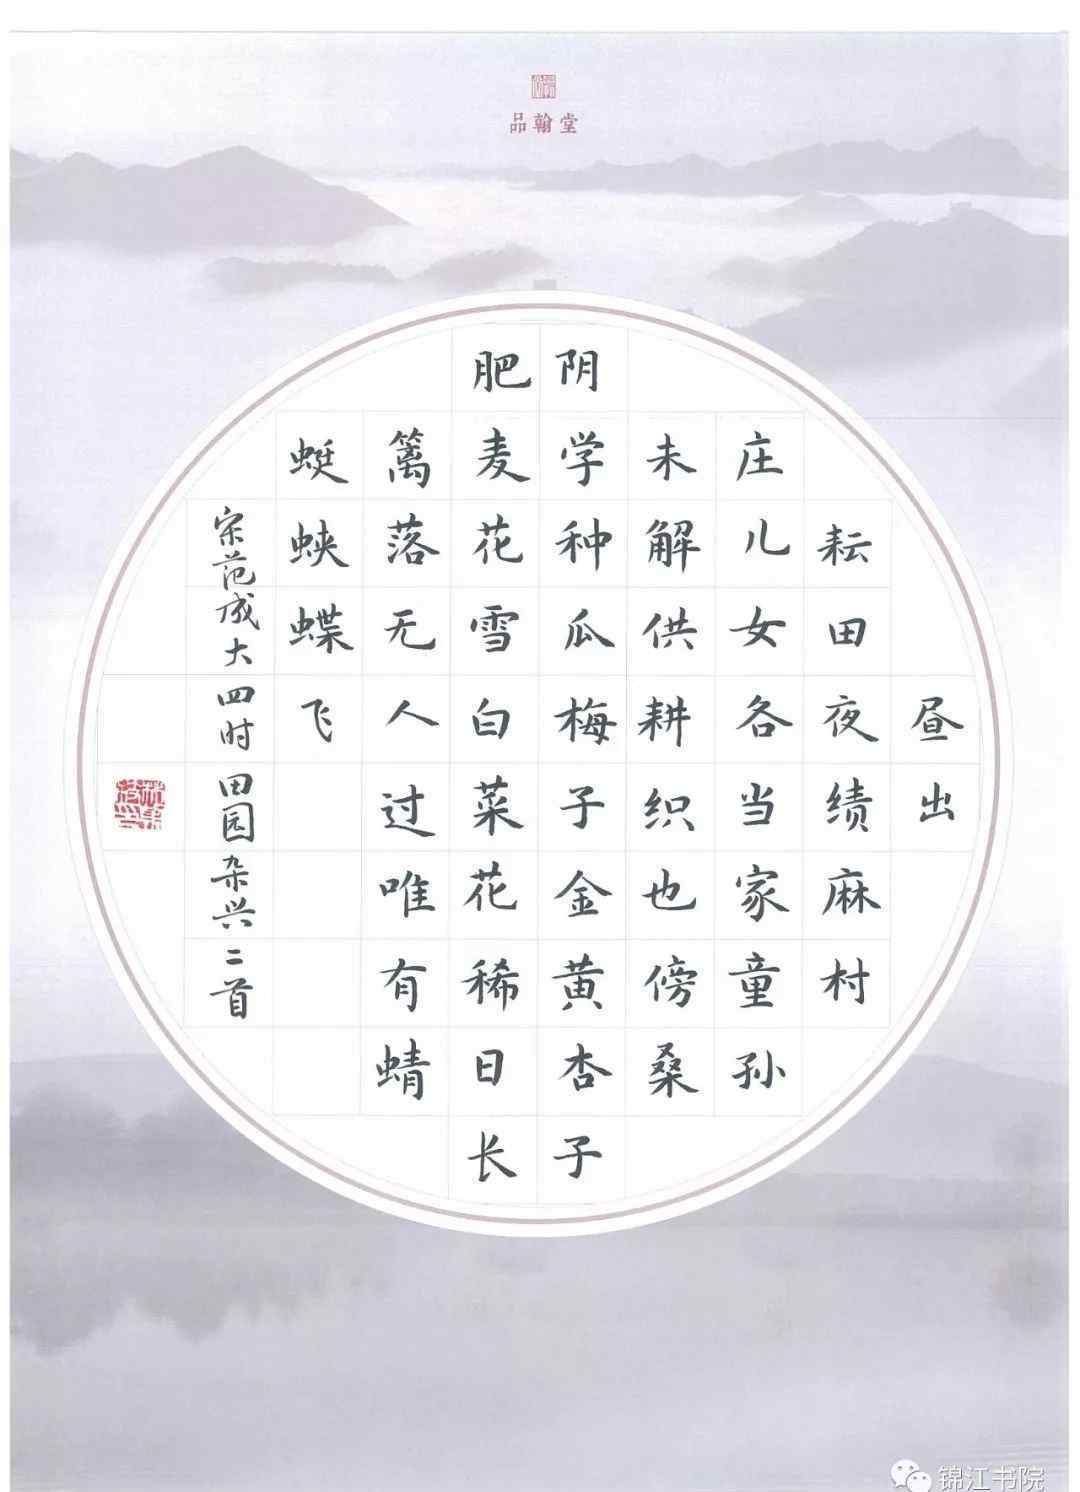 品翰堂
昼出
耘田夜绩麻村
庄儿女各当家童孙
未解供耕织也傍桑
阴学种瓜梅子金黄杏子
肥麦花雪白菜花稀日长
篱落无人过唯有蜻
蜓蛱蝶飞
宋范成大四时田园杂兴二首
锦江书院